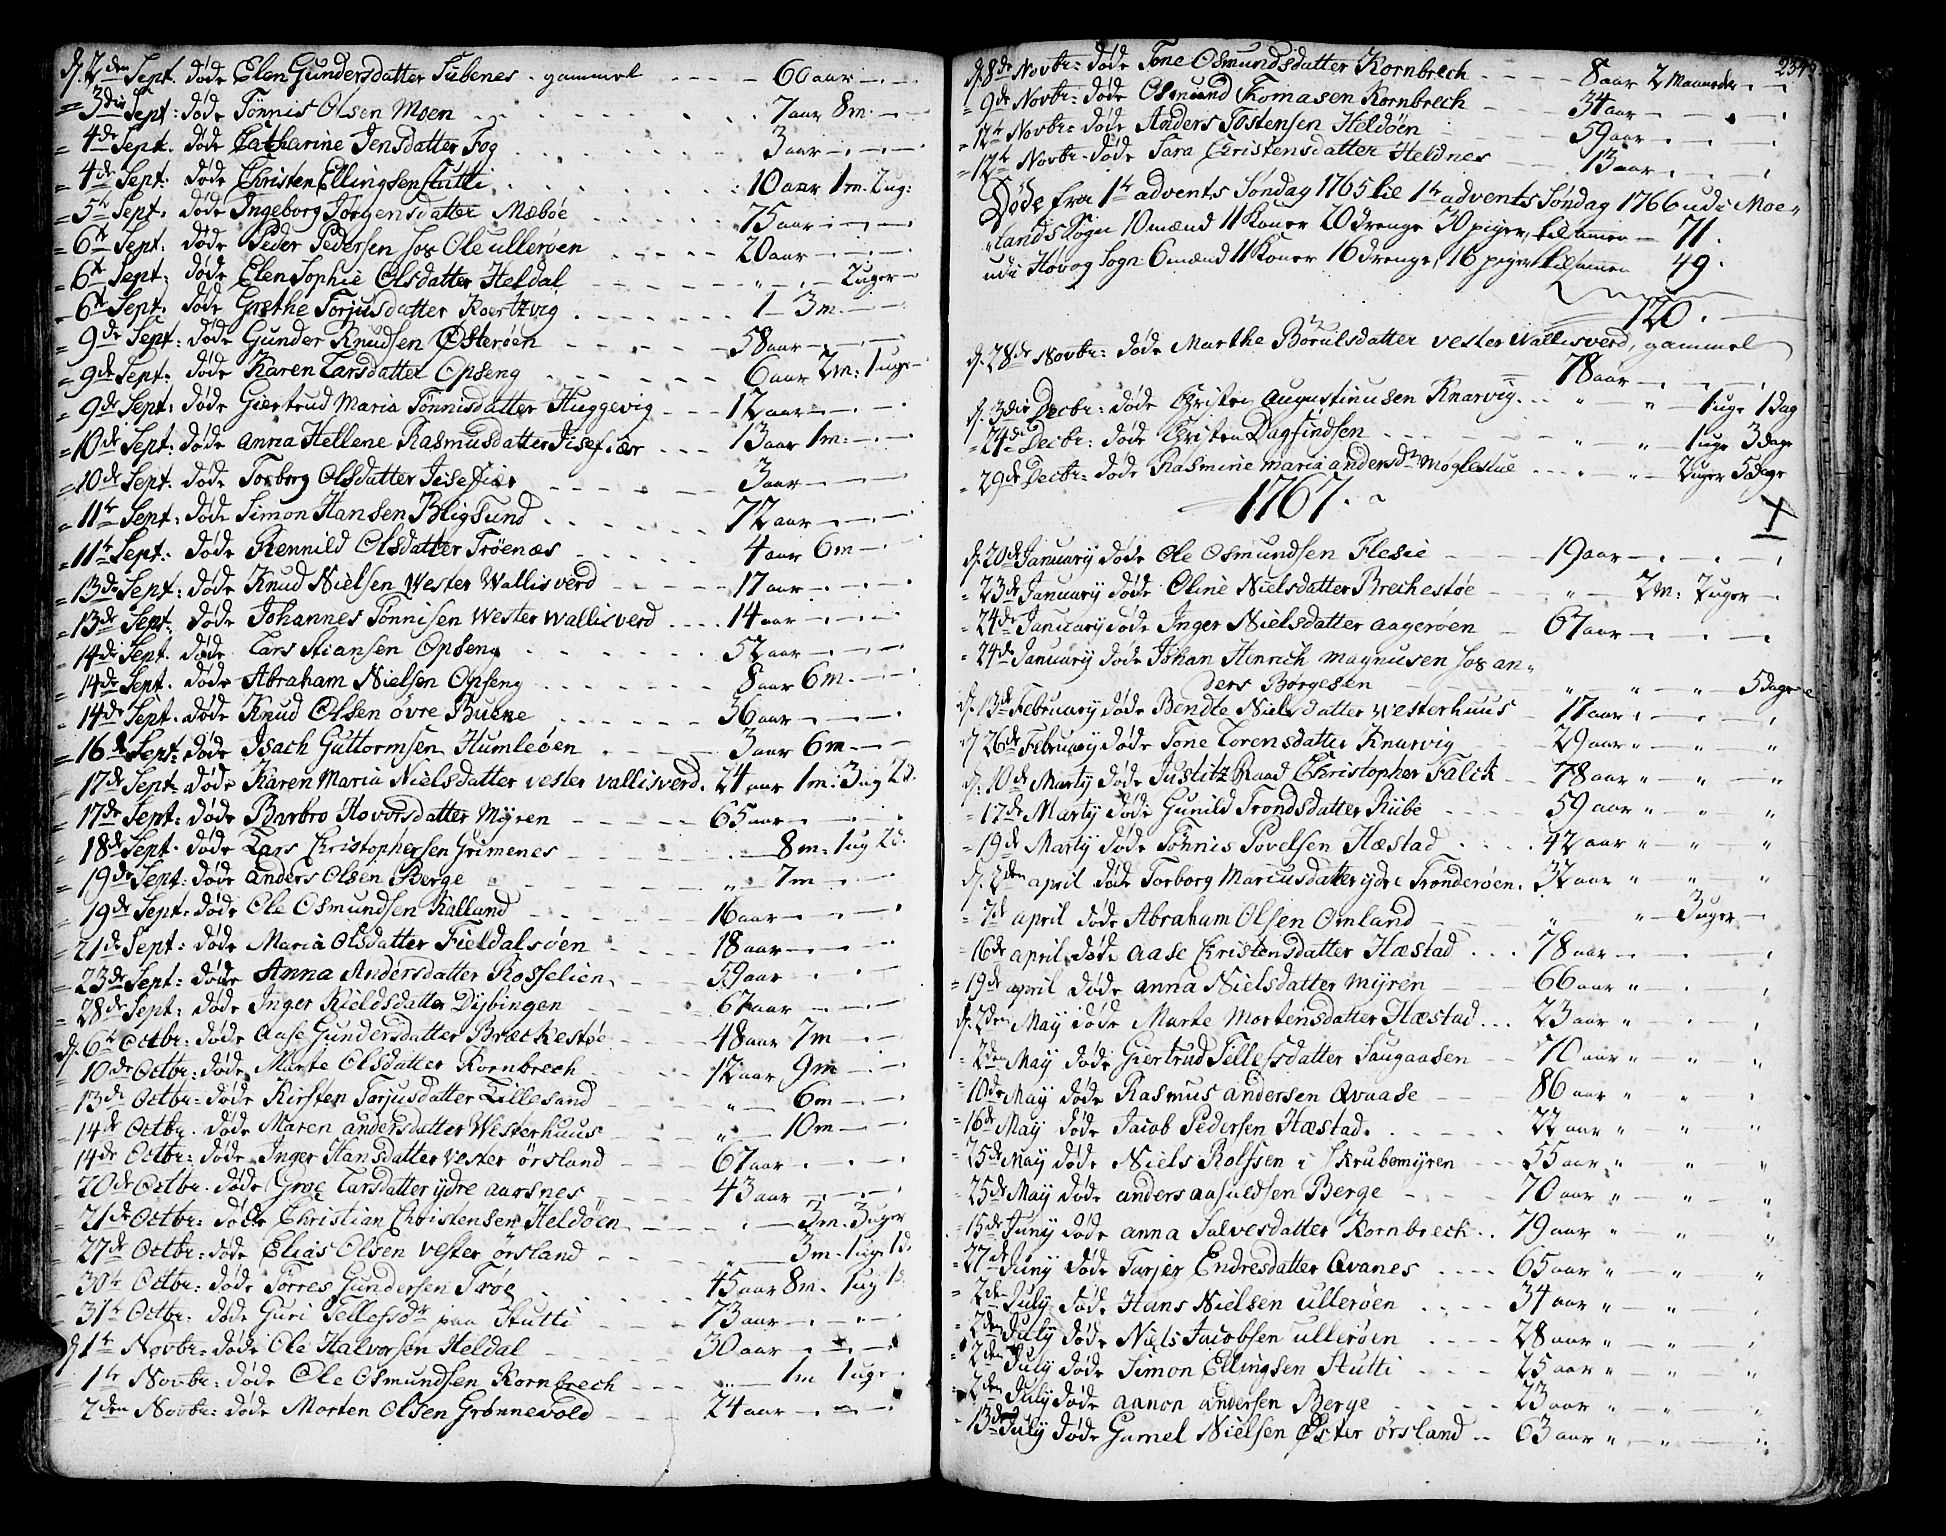 d. 2den Sept. døde Elen Gundersdatter Subenes. gammel 60 aar
= 3die Sept: døde Tønnis Olsen Moen 7 aar 8 m.
= 4de Sept. døde Catharine Jensdatter Fog 3 aar
= 4de Sept: døde Christen Ellingsen Stutti 10 aar 1 m. 2 ug:
= 5te Sept: døde Ingeborg Jørgensdatter Mæbøe 75 aar
= 6te Sept: døde Peder Pedersen hos Ole ullerøen 20 aar
= 6te Sept: døde Elen Sophie Olsdatter Heldal " 2 uger
= 6te Sept: døde Grethe Torjusdatter Koertvig 1 — 3 m.
= 9de Sept: døde Gunder Knudsen Østerøen 58 aar
= 9de Sept: døde Karen Larsdatter Opseng 6 aar 2 m: 1 uge
= 9de Sept: døde Giertrud Maria Tønnisdatter Huggevig 12 aar
= 10de Sept: døde Anna Hellene Rasmusdatter Jisefiær 13 aar 1 m:
= 10de Sept. døde Torborg Olsdatter Jisefiær 3 aar
= 11te Sept: døde Simon Hansen Bligsund 72 aar
= 11te Sept: døde Rennild Olsdatter Trøenæs 4 aar 6 m
= 13de Sept: døde Knud Nielsen Wester Wallisverd 17 aar
= 13de Sept: døde Johannes Tønnisen Wester Wallisverd 14 aar
= 14de Sept. døde Lars Stiansen Opseng 52 aar
= 14de Sept. døde Abraham Nielsen Opseng 8 aar 6 m.
= 14de Sept. døde Knud Olsen øvre Buene 36 aar
= 16de Sept: døde Isach Guttormsen Humleøen 3 aar 6 m
= 17de Sept: døde Karen Maria Nielsdatter vester vallisverd. 24 aar 1 m: 3 ug 2 d.
= 17de Sept: døde Barbro Hovorsdatter Myren 65 aar
= 18de Sept. døde Lars Christophersen Grimenes 8 m: 1 ug 2 d.
= 19de Sept: døde Anders Olsen Berge " 7 m
= 19de Sept: døde Ole Osmundsen Kalland 16 aar
= 21de Sept: døde Maria Olsdatter Fieldalsøen 18 aar
= 23de Sept: døde Anna Andersdatter Rosselien 59 aar
= 28de Sept: døde Inger Kieldsdatter Dybingen 67 aar
d. 6te Octbr: døde Aase Gundersdatter Brækestøe 48 aar 7 m
= 10de Octbr: døde Marte Olsdatter Kornbrech 12 aar 9 m
= 13de Octbr: døde Kirsten Torjusdatter Lillesand " 6 m
= 14de Octbr. døde Maren andersdatter Westerhuus " 10 m
= 14de Octbr: døde Inger Hansdatter vester ørsland 67 aar
= 20de Octbr. døde Groe Larsdatter ydre aarsnes 43 aar
= 21de Octbr: døde Christian Christensen Heldøen 3 m. 3 uger
= 27de Octbr: døde Elias Olsen vester ørsland " 3 m. 1 uge 1 d.
= 30te Octbr: døde Torres Gundersen Trøe 45 aar 8 m. 1 ug 1 d
= 31te Octbr: døde Guri Tellefsdr paa Stutti 73 aar
d. 1te Novbr: døde Ole Halvorsen Heldal 30 aar
= 1te Novbr: døde Ole Osmundsen Kornbrech 1 m 1 uge
= 2den Novbr: døde Morten Olsen Grønnevold 24 aar
d. 8de Novbr: døde Tone Osmundsdatter Kornbrech 8 aar 2 Maaneder
= 9de Novbr: døde Osmund Thomasen Kornbrech 34 aar
= 12te Novbr: døde Anders Tostensen Heldøen 59 aar
= 12te Novbr. døde Sara Christensdatter Heldnes 13 aar
Døde fra 1te advents Søndag 1765 til 1te advents Søndag 1766 udi Moe-
lands Sogn 10 mænd 11 Koner 20 drenge 30 piger, tilsamen — 71.
udi Høvog Sogn 6 mænd 11 Koner 16 drenge, 16 piger tilsamen 49.
120.
d. 28de Novbr: døde Marthe Børulsdatter vester Wallisverd, gammel
78 aar
d. 3die Decbr: døde Christen Augustinusen Knarvig " " 1 uge 1 dag
= 24de Decbr: døde Christen Dagfindsen " " 1 uge 3 dage
= 29de Decbr: døde Rasmine maria andersdr Møglestue " 2 uger 5 dage
1767.
d. 20de January døde Ole Osmundsen Flesie 19 aar
= 23de January døde Oline Nielsdatter Brechestøe " 2 m: 2 uger
= 24de January døde Inger Nielsdatter aagerøen 67 aar
= 24de January døde Johan Hinrich Magnusen hos an-
ders Børgesen " " " 5 dage
d. 13de February døde Bendte Nielsdatter Westerhuus 17 aar
d. 26de February døde Tone Lorensdatter Knarvig 29 aar " "
d. 10de Marty døde Justitz Raad Christopher Falck 78 aar " "
= 17de Marty døde Gunild Trondsdatter Ribe 59 aar " "
= 19de Marty døde Tønnis Povelsen Hæstad 42 aar " "
d. 2den april døde Torborg Mariusdatter ydre Tronderøen. 32 aar " "
= 7de april døde Abraham Olsen Omland " " 3 uger
= 16de april døde Aase Christensdatter Hæstad 78 aar
= 19de april døde Anna Nielsdatter Myren 66 aar "
d. 2den May døde Marte Mortensdatter Hæstad 23 aar "
= 2den May døde Giertrud Tellefsdatter Saugaasen 70 aar " "
= 10de May døde Rasmus andersen Qvaase 86 aar " "
= 16de May døde Jacob Pedersen Hæstad. 22 aar " "
= 25de May døde Niels Rolfsen i Skrubemyren 55 aar " "
= 25de May døde anders aasuldsen Berge 70 aar " "
= 15de Juny døde anna Salvesdatter Kornbrech 79 aar " "
= 27de Juny døde Turjer Endresdatter Qvanes 65 aar " "
= 2den July døde Hans Nielsen ullerøen 34 aar " "
= 2den July døde Niels Jacobsen ullerøen 28 aar " "
= 2den July døde Simon Ellingsen Stutti 25 aar "
= 2den July døde annon andersen Berge 23 aar " "
= 13de July døde Gumel Nielsen Øster ørsland 63 aar " "